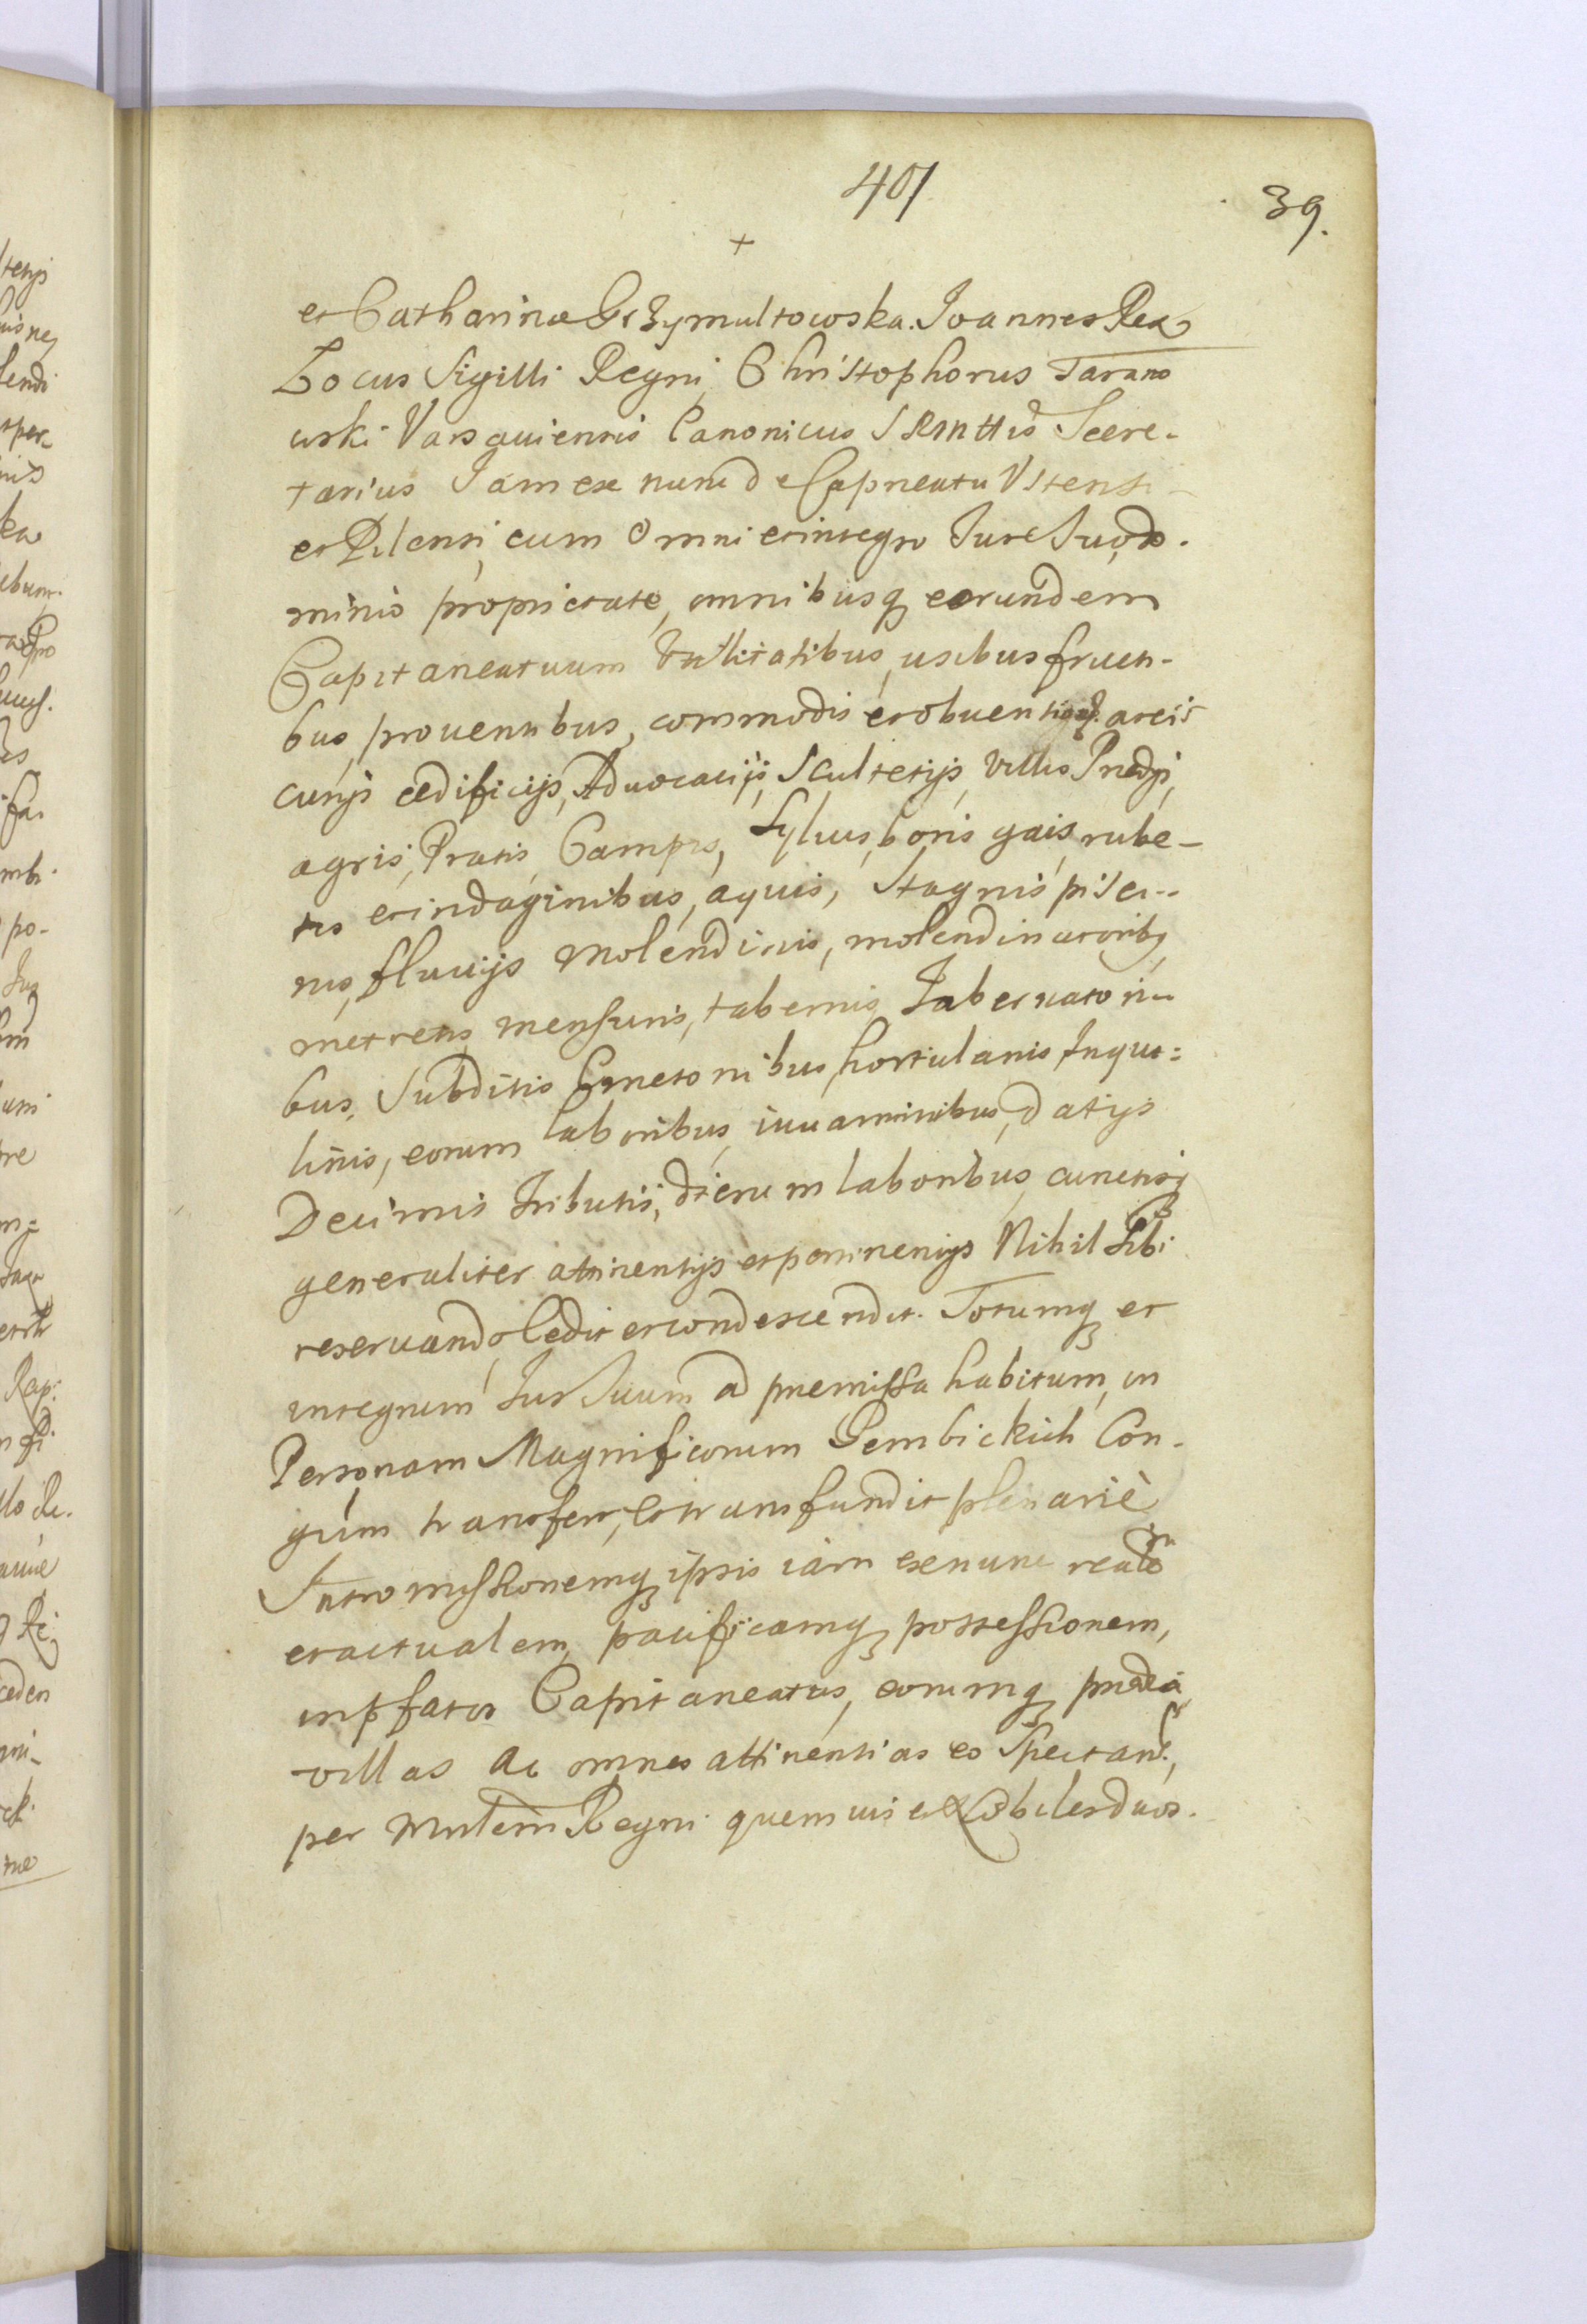 401
39.
+
et Catharinæ Grzymultowska. Joannes Rex
Locus Sigilli Regni, Christophorus Tarano
wski Varsauiensis Canonicus SRMttis Secre-
tarius Jam ex nunc de Capneatu Vstensi
et Pilensi, cum omni et integro Jure Suo, do-
minio proprietate, omnibusq eorundem
Capitaneatuum Vtilitatibus, usibus fructi-
bus, prouentibus, commodis et obuentigs. areis
curijs ædificijs, Aduocatijs, Scultetijs, Villis Prædijs,
agris, Pratis, Campis, Syluis, boris gais, rube-
tis et indaginibus, aquis, Stagnis, pisci-
nis, fluuijs Molendinis, molendinatoribq
metretis, mensuris, tabernis Tabernatori-
bus, Subditis Cmetonibus, hortulanis Inqui-
linis, eorum laboribus, iuuaminibus, datijs
Decimis Tributis, dierum laboribus, cunctisq
generaliter attinentijs et pertinentijs Nihil Sibi
reseruando Cedit et condescendit. Totumq et
integrum Jus Suum ad præmissa habitum, in
Personam Magnificorum Gembickich Con-
gum transfert, et transfundit plenariè
Intromissionemq ipsis iam ex nunc realem
et actualem, pacificamq possessionem,
in pfatos Capitaneatus, eorumq prædia,
villas ac omnes attinentias eo Spectan.,
per Mnlem Regni quemuis et Nobiles duos.